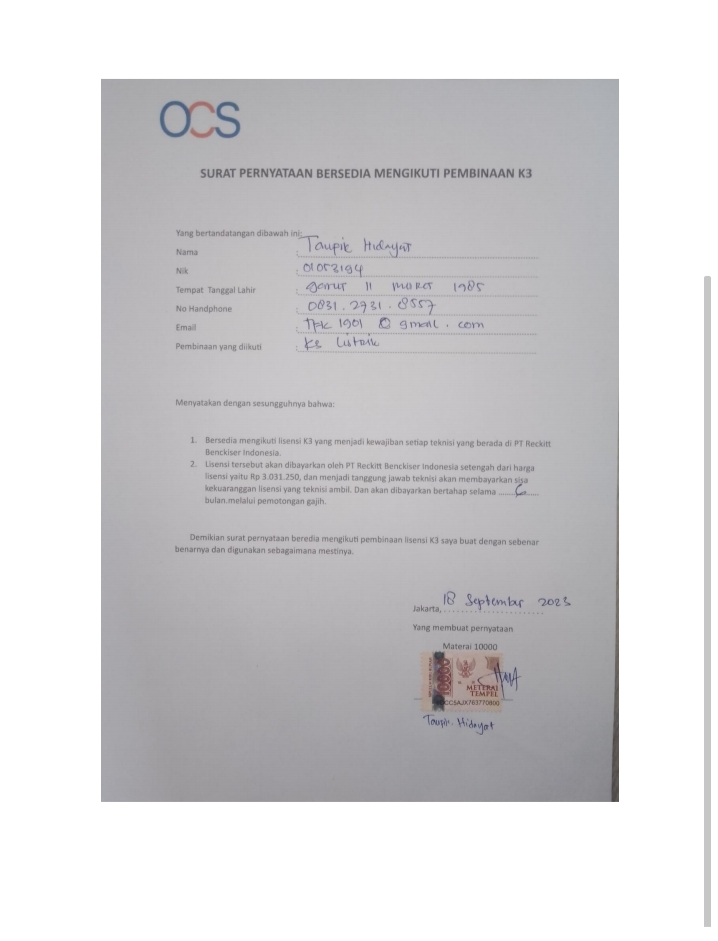 OCS
SURAT PERNYATAAN BERSEDIA MENGIKUTI PEMBINAAN K3
Yang bertandatangan dibawah ini:
Nama : Taupik Hidayat
Nik : 01053194
Tempat Tanggal Lahir : Garut 11 Maret 1985
No Handphone : 0831.2731.8557
Email : TPK 1901 @ gmail.com
Pembinaan yang diikuti : K3 Listrik
Menyatakan dengan sesungguhnya bahwa:
1. Bersedia mengikuti lisensi K3 yang menjadi kewajiban setiap teknisi yang berada di PT Reckitt
Benckiser Indonesia.
2. Lisensi tersebut akan dibayarkan oleh PT Reckitt Benckiser Indonesia setengah dari harga
lisensi yaitu Rp 3.031.250, dan menjadi tanggung jawab teknisi akan membayarkan sisa
kekuaranggan lisensi yang teknisi ambil. Dan akan dibayarkan bertahap selama ......6......
bulan.melalui pemotongan gajih.
Demikian surat pernyataan beredia mengikuti pembinaan lisensi K3 saya buat dengan sebenar
benarnya dan digunakan sebagaimana mestinya.
Jakarta, 18 September 2023
Yang membuat pernyataan
Materai 10000
10000
METERAI
TEMPEL
CC5AJX763770800
Taupik Hidayat